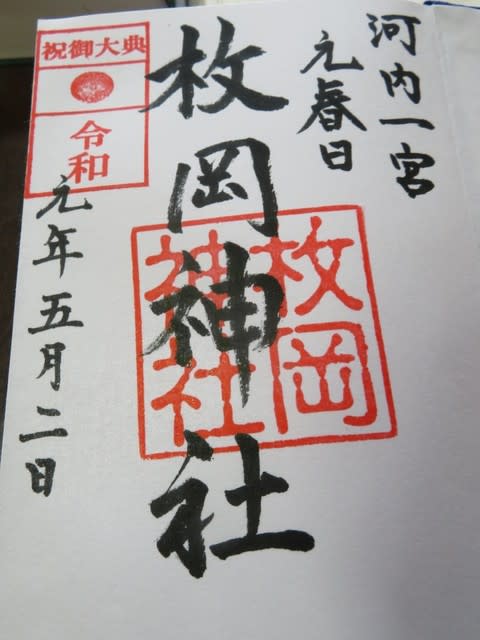 河内一宮
元春日
枚岡神社
枚岡
神社
祝御大典
令和
元年五月二日